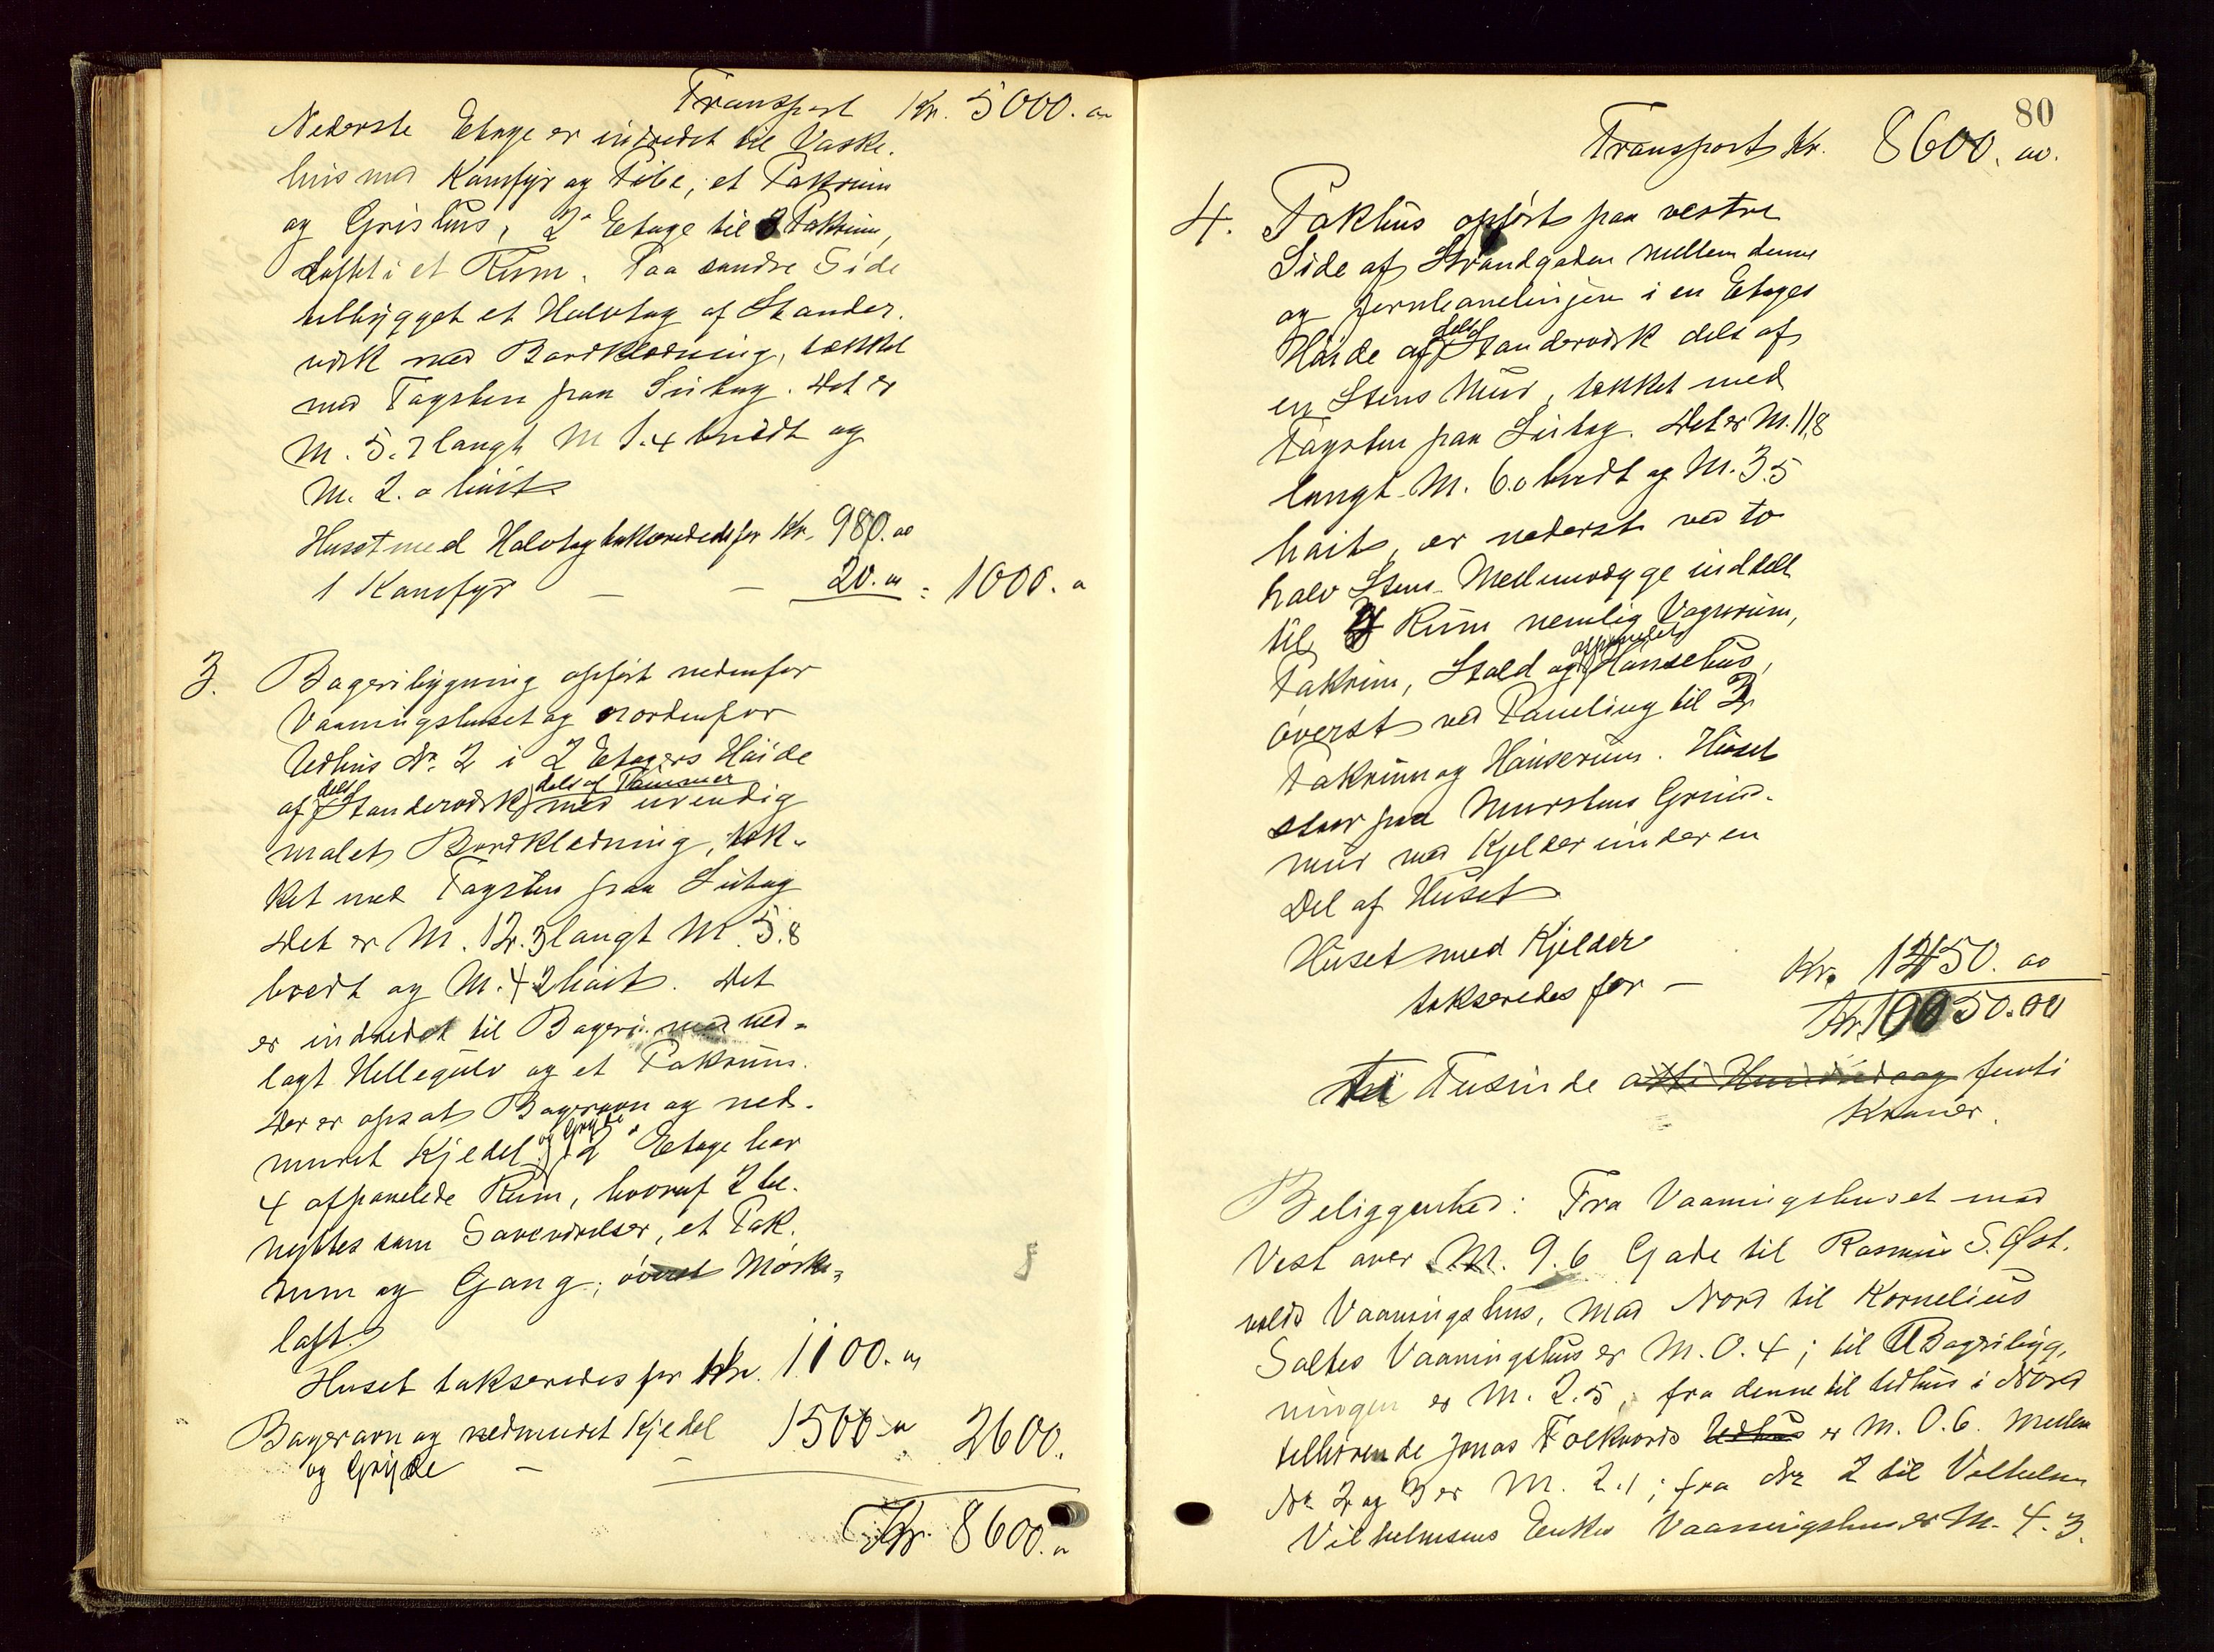 Transport Kr. 5000.00
Nederste Etage er indredet til Vaske-
hus med Komfyr og Pibe, et Pakrum
og Grishus, 2den Etage til 2 Pakrum,
Loftet i et Rum. Paa søndre Side
tilbygget et Halvtag af Stander-
værk med Bordklædning, tækket
med Tagsten paa Sutag. Det er
M. 5.7 langt M 1.4 bredt og
M. 2.0 høit
Huset med Halvtag takseredes for Kr. 980.00
1 Komfyr — — 20.00 = 1000.00
3. Bageribygning opført nedenfor
Vaaningshuset og nordenfor
Udhus No 2 i 2 Etagers Høide
af dels Standerværk dels af Tømmer med udvendig
malet Bordklædning, tæk-
ket med Tagsten paa Sutag
Det er M. 12.3 langt M 5.8
bredt og M. 4.2 høit. Det
er indredet til Bageri med ned-
lagt Hellegulv og et Pakrum.
Der er opsat Bagerovn og ned-
muret Kjedel og Gryde. 2den Etage har
4 afpanelede Rum, hvoraf 2 be-
nyttes som Soveværelser, et Pak-
rum og Gang; øverst Mørke-
loft.
Huset takseredes for Kr. 1100.00
Bagerovn og nedmuret Kjedel 1500.00 2600.
og Gryde — —
Kr. 8600.00
80
Transport Kr. 8600.00.
4. Pakhus opført paa vestre
Side af Strandgaden mellem denne
og Jernbanelinjen i en Etages
Høide af dels Standerværk dels af
en Stens Mur, tækket med
Tagsten paa Sutag. Det er M. 11.8
langt M. 6.0 bredt og M. 3.5
høit, er nederst ved to
halv Stens Mellemvægge inddelt
til 3 Rum nemlig Vognrum,
Pakrum, Stald og afpanelet Hønsehus,
øverst ved Paneling til 2
Pakrum og Hønserum. Huset
staar paa Murstens Grund-
mur med Kjelder under en
Del af Huset
Huset med Kjelder
takseredes for — Kr. 1450.00
Kr. 10050.00
Ti Tusinde otte Hundrede og femti
Kroner.
Beliggenhed: Fra Vaaningshuset mod
Vest over M. 9.6 Gade til Rasmus S. Øst-
volds Vaaningshus, mod Nord til Kornelius
Saltes Vaaningshus er M. 0.4; til Bageribyg-
ningen er M. 2.5, fra denne til Udhus i Nord
tilhørende Jonas Folkvords Udhus er M. 0.6. Mellem
No 2 og 3 er M. 2.1; fra No 2 til Vilhelm
Vilhelmsens Enkes Vaaningshus er M. 4.3.